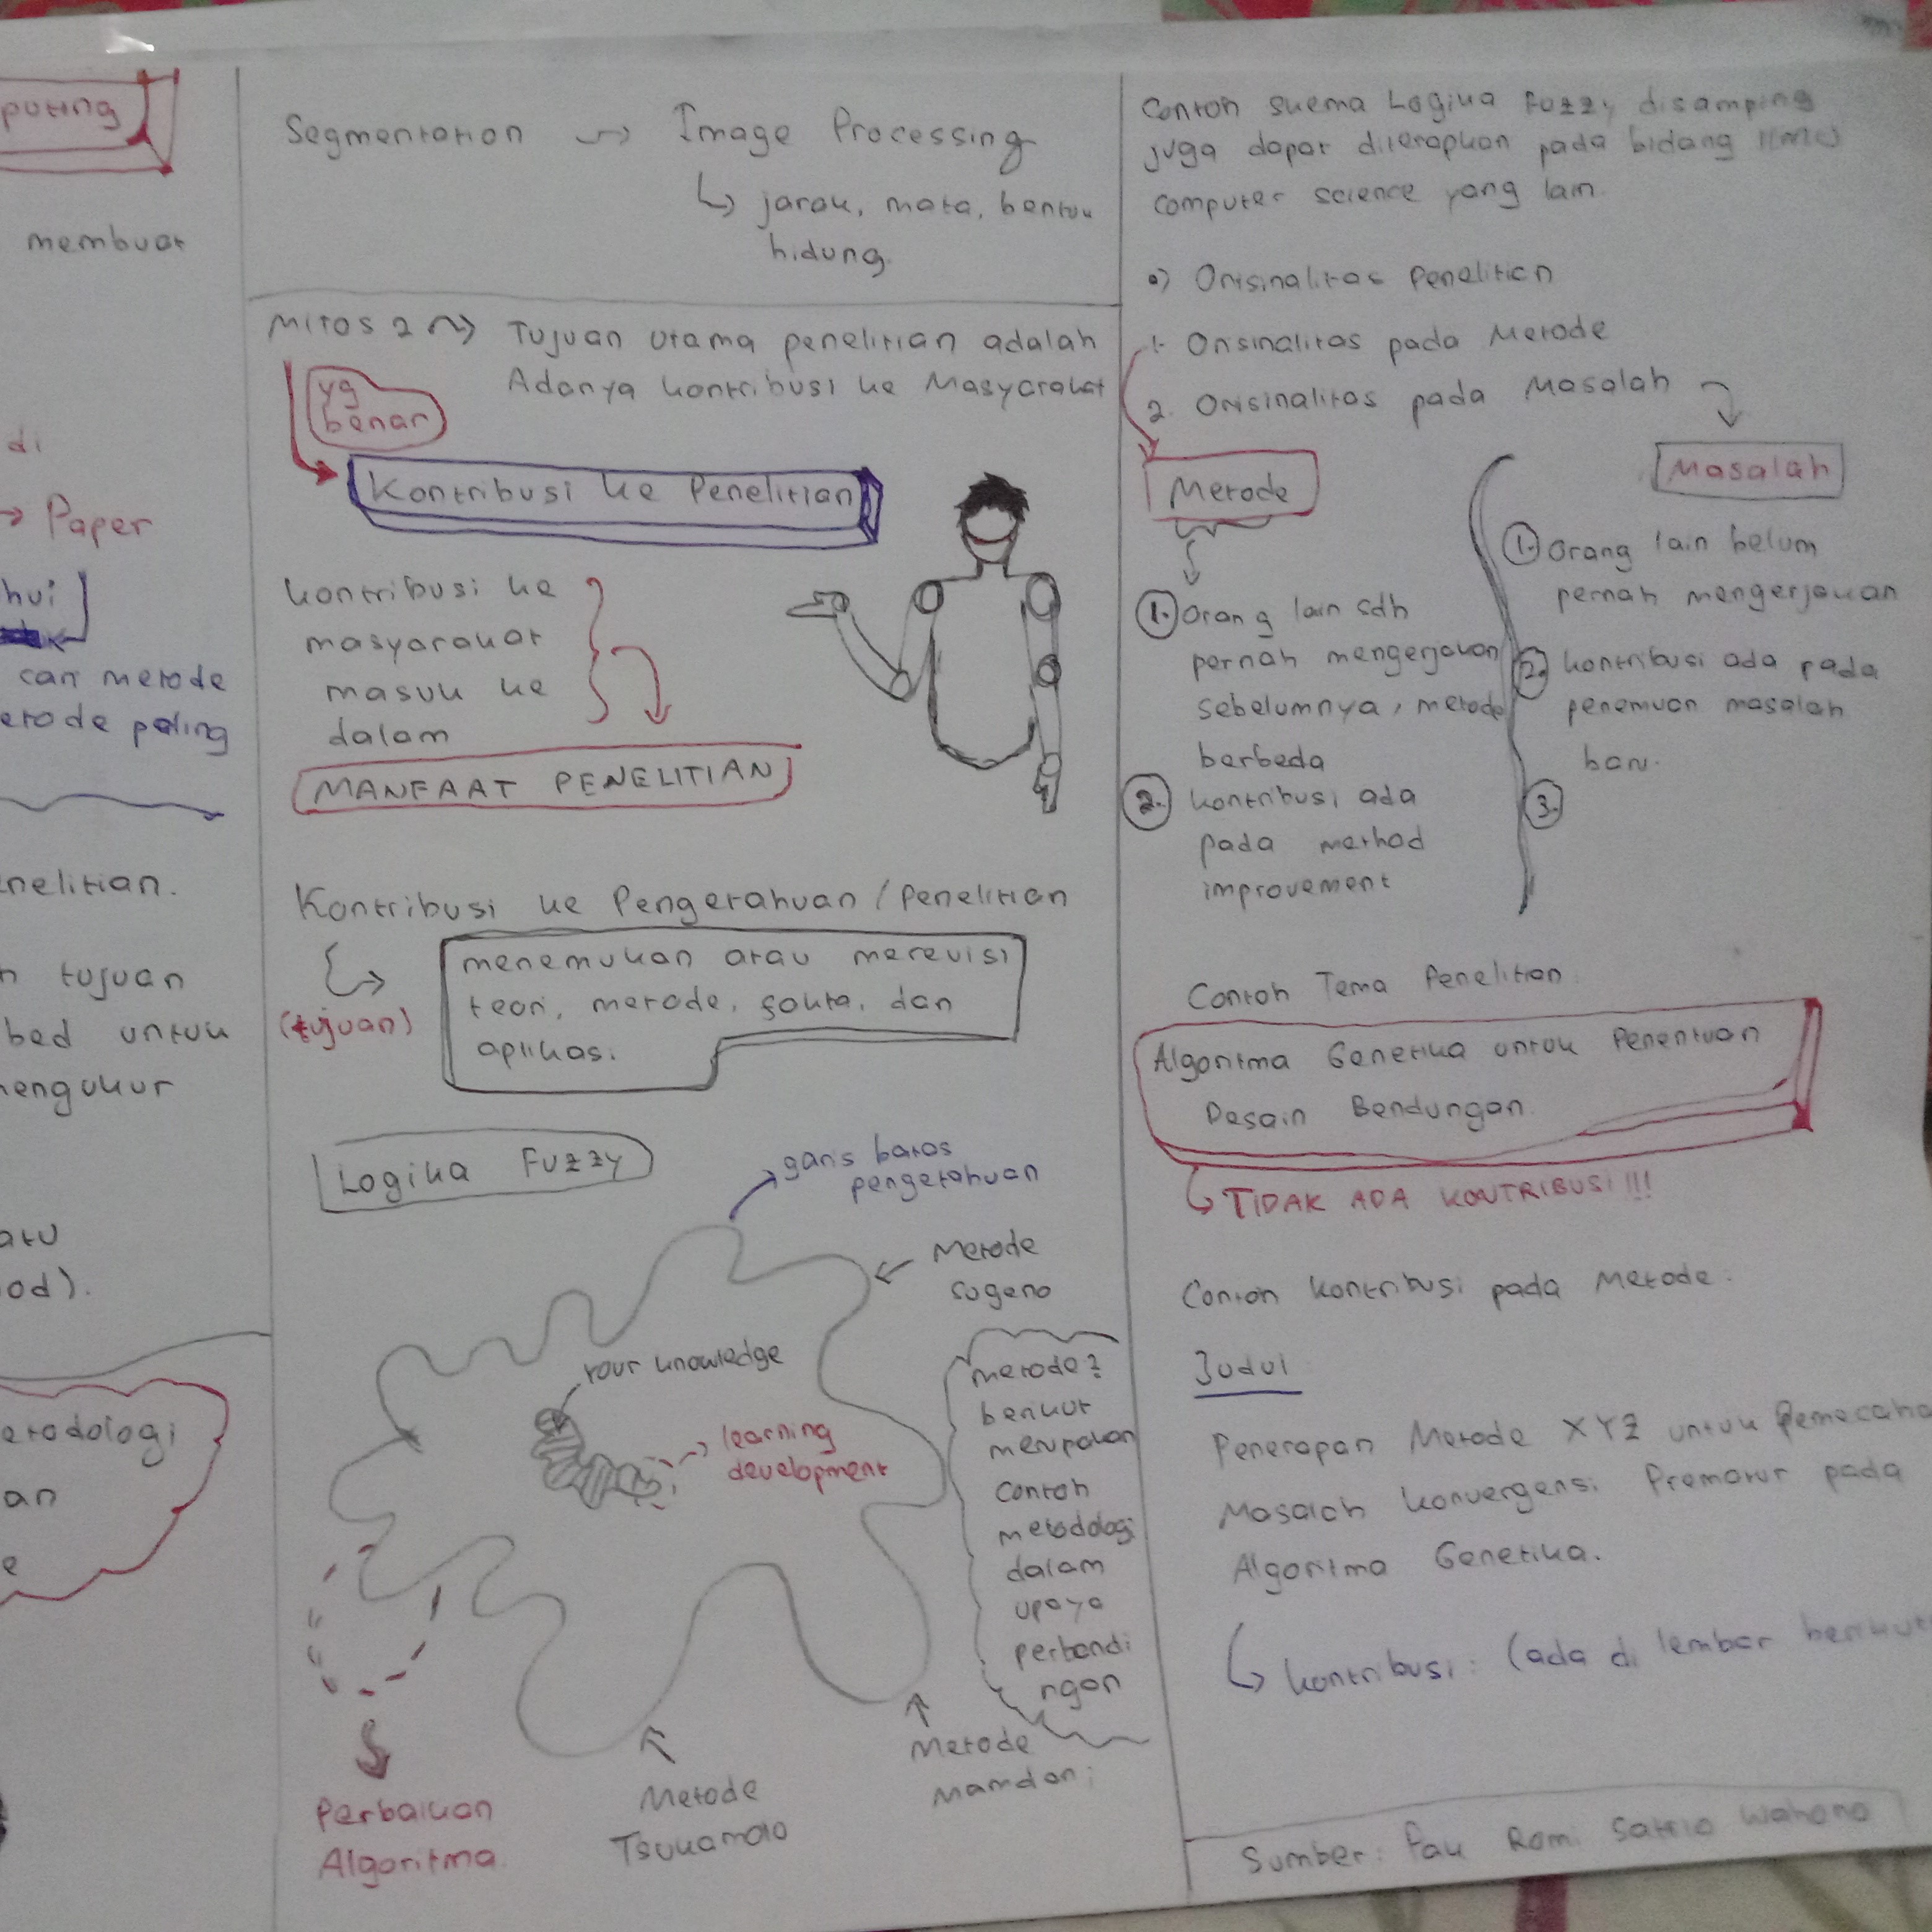 puting
membuat
di
→ Paper
hui
cari metode
etode paling
nelitian.
n tujuan
bed untuk
mengukur
atu
od).
etodologi
an
e
Segmentation → Image Processing
↳ jarak, mata, bentuk
hidung.
Mitos 2 → Tujuan utama penelitian adalah
Adanya kontribusi ke Masyarakat
yg
benar
Kontribusi ke Penelitian
kontribusi ke
masyarakat
masuk ke
dalam
MANFAAT PENELITIAN
Kontribusi ke Pengetahuan / Penelitian
(tujuan)
menemukan atau merevisi
teori, metode, fakta, dan
aplikasi.
Logika Fuzzy
garis batas
pengetahuan
Metode
sugeno
Your knowledge
learning
development
metode?
berikut
merupakan
contoh
metodologi
dalam
upaya
perbandi
ngan
Metode
Mamdani
Metode
Tsukamoto
Perbaikan
Algoritma.
Contoh skema Logika Fuzzy disamping
juga dapat diterapkan pada bidang ilmu
computer science yang lain.
Orisinalitas Penelitian
1. Orisinalitas pada Metode
2. Orisinalitas pada Masalah
Metode
1. Orang lain sdh
pernah mengerjakan
sebelumnya, metode
berbeda
2. kontribusi ada
pada method
improvement
Masalah
1. Orang lain belum
pernah mengerjakan
2. kontribusi ada pada
penemuan masalah
baru.
3.
Contoh Tema Penelitian:
Algoritma Genetika untuk Penentuan
Desain Bendungan
↳ TIDAK ADA KONTRIBUSI!!!
Contoh kontribusi pada Metode:
Judul
Penerapan Metode XYZ untuk Pemecaha
Masalah Konvergensi Prematur pada
Algoritma Genetika.
↳ kontribusi: (ada di lembar berikut
Sumber: Pak Romi Satrio Wahono